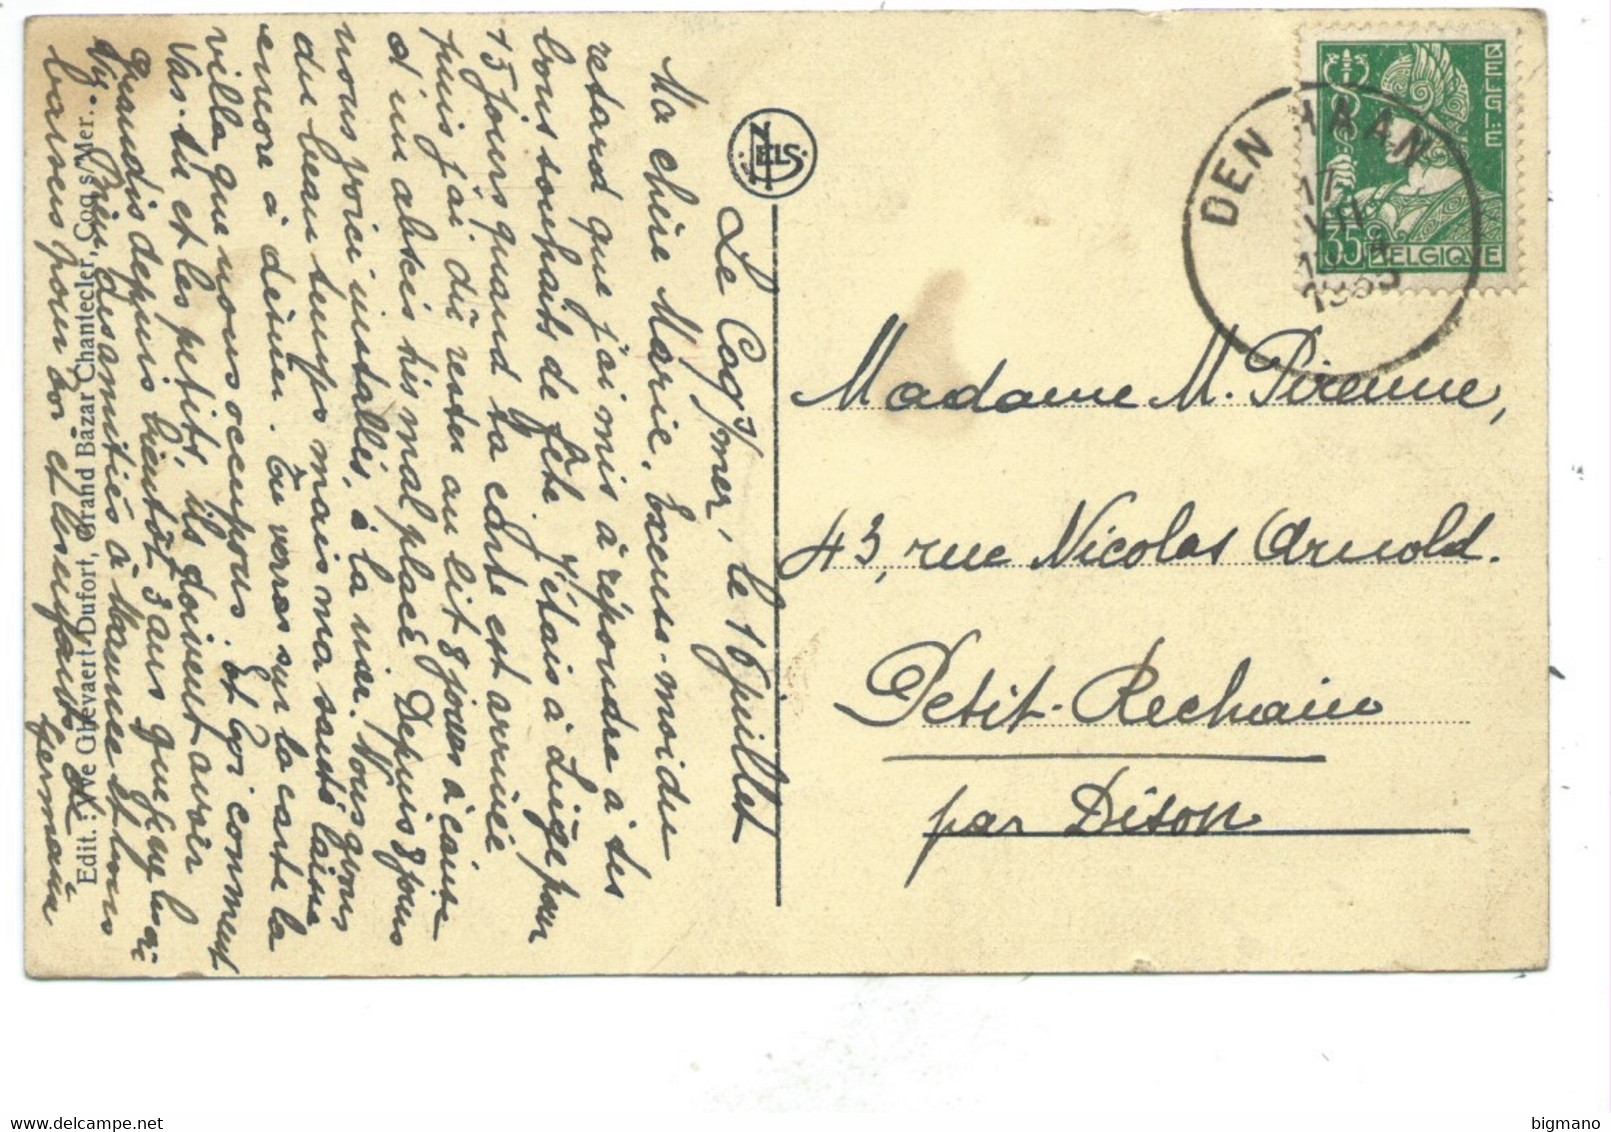 Le Coq s/mer, le 16 juillet
Ma chère Marie. Excuse-moi du
retard que j'ai mis à répondre à tes
bons souhaits de fête. J'étais à Liège pour
15 jours quand ta carte est arrivée
puis j'ai dû rester au lit 8 jours à cause
d'un abcès très mal placé. Depuis 8 jours
nous voici installés à la mer. Nous avons
du beau temps mais ma santé laisse
encore à désirer. Tu verras sur la carte la
villa que nous occupons. Et toi comment
vas-tu et les petits, ils doivent avoir
grandis depuis bientôt 3 ans que je ne les ai
vus. Bien des amitiés à Maurice et bons
baisers pour toi et les enfants de
Germaine
Edit. : Vve Ghevaert-Dufort, Grand Bazar Chantecler, Coq s/Mer.
NELS
Madame M. Pirenne,
43, rue Nicolas Arnold.
Petit-Rechain
par Dison
BELGIE
35 c BELGIQUE
DEN HAAN
17
VII
1935
bigmano